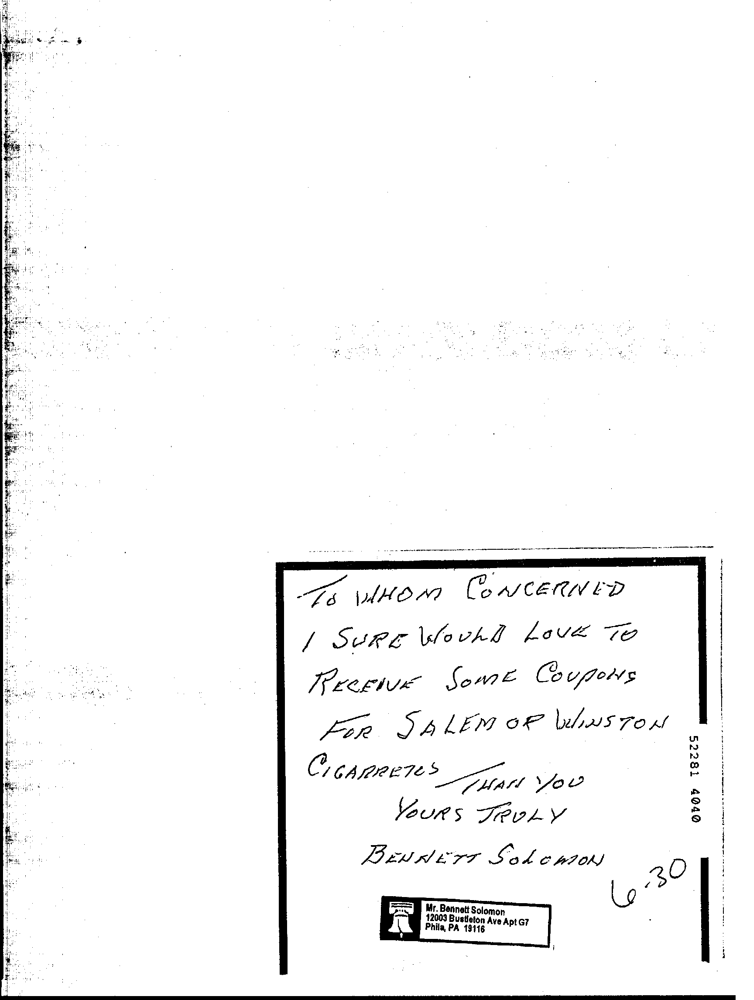 To WHOM CONCERNED
I SURE WOULD LOVE TO
RECEIVE SOME COUPONS
FOR SALEM OR WINSTON
CIGARRETES THAN YOU
YOURS TRULY
BENNETT SOLOMON
6.30
Mr. Bennett Solomon
12003 Bustleton Ave Apt G7
Phila, PA 19116
52281 4040